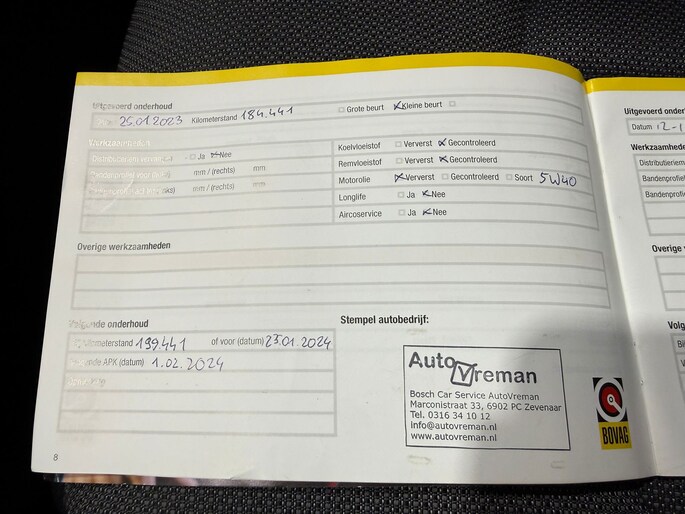 Uitgevoerd onderhoud
25.01.2023 Kilometerstand 184.441 Grote beurt Kleine beurt
Werkzaamheden
Ja Nee
mm / (rechts) mm
mm / (rechts) mm
Koelvloeistof Ververst Gecontroleerd
Remvloeistof Ververst Gecontroleerd
Motorolie Ververst Gecontroleerd Soort 5W40
Longlife Ja Nee
Aircoservice Ja Nee
Overige werkzaamheden
Volgende onderhoud
Kilometerstand 199.441 of voor (datum) 25.01.2024
APK (datum) 1.02.2024
Stempel autobedrijf:
Auto Vreman
Bosch Car Service AutoVreman
Marconistraat 33, 6902 PC Zevenaar
Tel. 0316 34 10 12
Info@autovreman.nl
www.autovreman.nl
BOVAG
8
Uitgevoerd onderho
Datum 12-1
Werkzaamhede
Distributieriem
Bandenprofiel
Bandenprofie
Overige
Volg